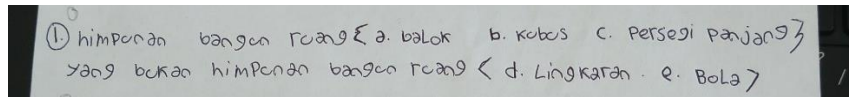 ① himpunan bangun ruang { a. balok b. kubus c. persegi panjang }
yang bukan himpunan bangun ruang < d. Lingkaran . e. BoLa >